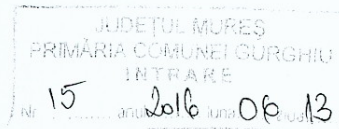 JUDEŢUL MUREŞ
PRIMĂRIA COMUNEI GURGHIU
INTRARE
Nr. 15 anul 2016 luna 06 ziua 13